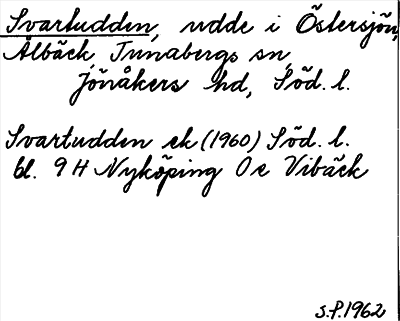 Svartudden, udde i Östersjön,
Ålbäck, Tunabergs sn,
Jönåkers hd, Söd. l.
Svartudden ek (1960) Söd. l.
bl. 9 H Nyköping 0 e Vibäck
S.P.1962